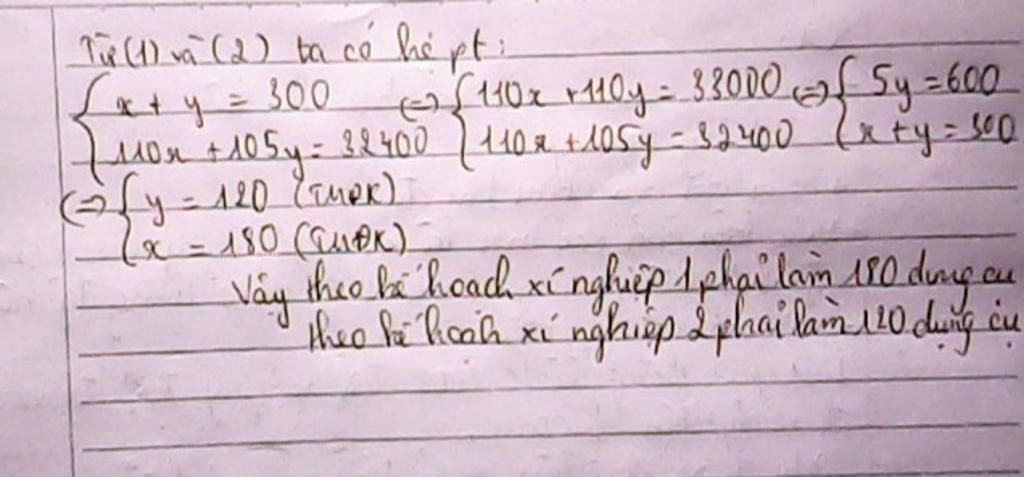 Từ (1) và (2) ta có hệ pt:
{ x + y = 300 <=> { 110x + 110y = 33000 <=> { 5y = 600
{ 110x + 105y = 32400 { 110x + 105y = 32400 { x + y = 300
<=> { y = 120 (TMĐK)
{ x = 180 (TMĐK)
Vậy theo kế hoạch xí nghiệp 1 phải làm 180 dụng cụ
theo kế hoạch xí nghiệp 2 phải làm 120 dụng cụ